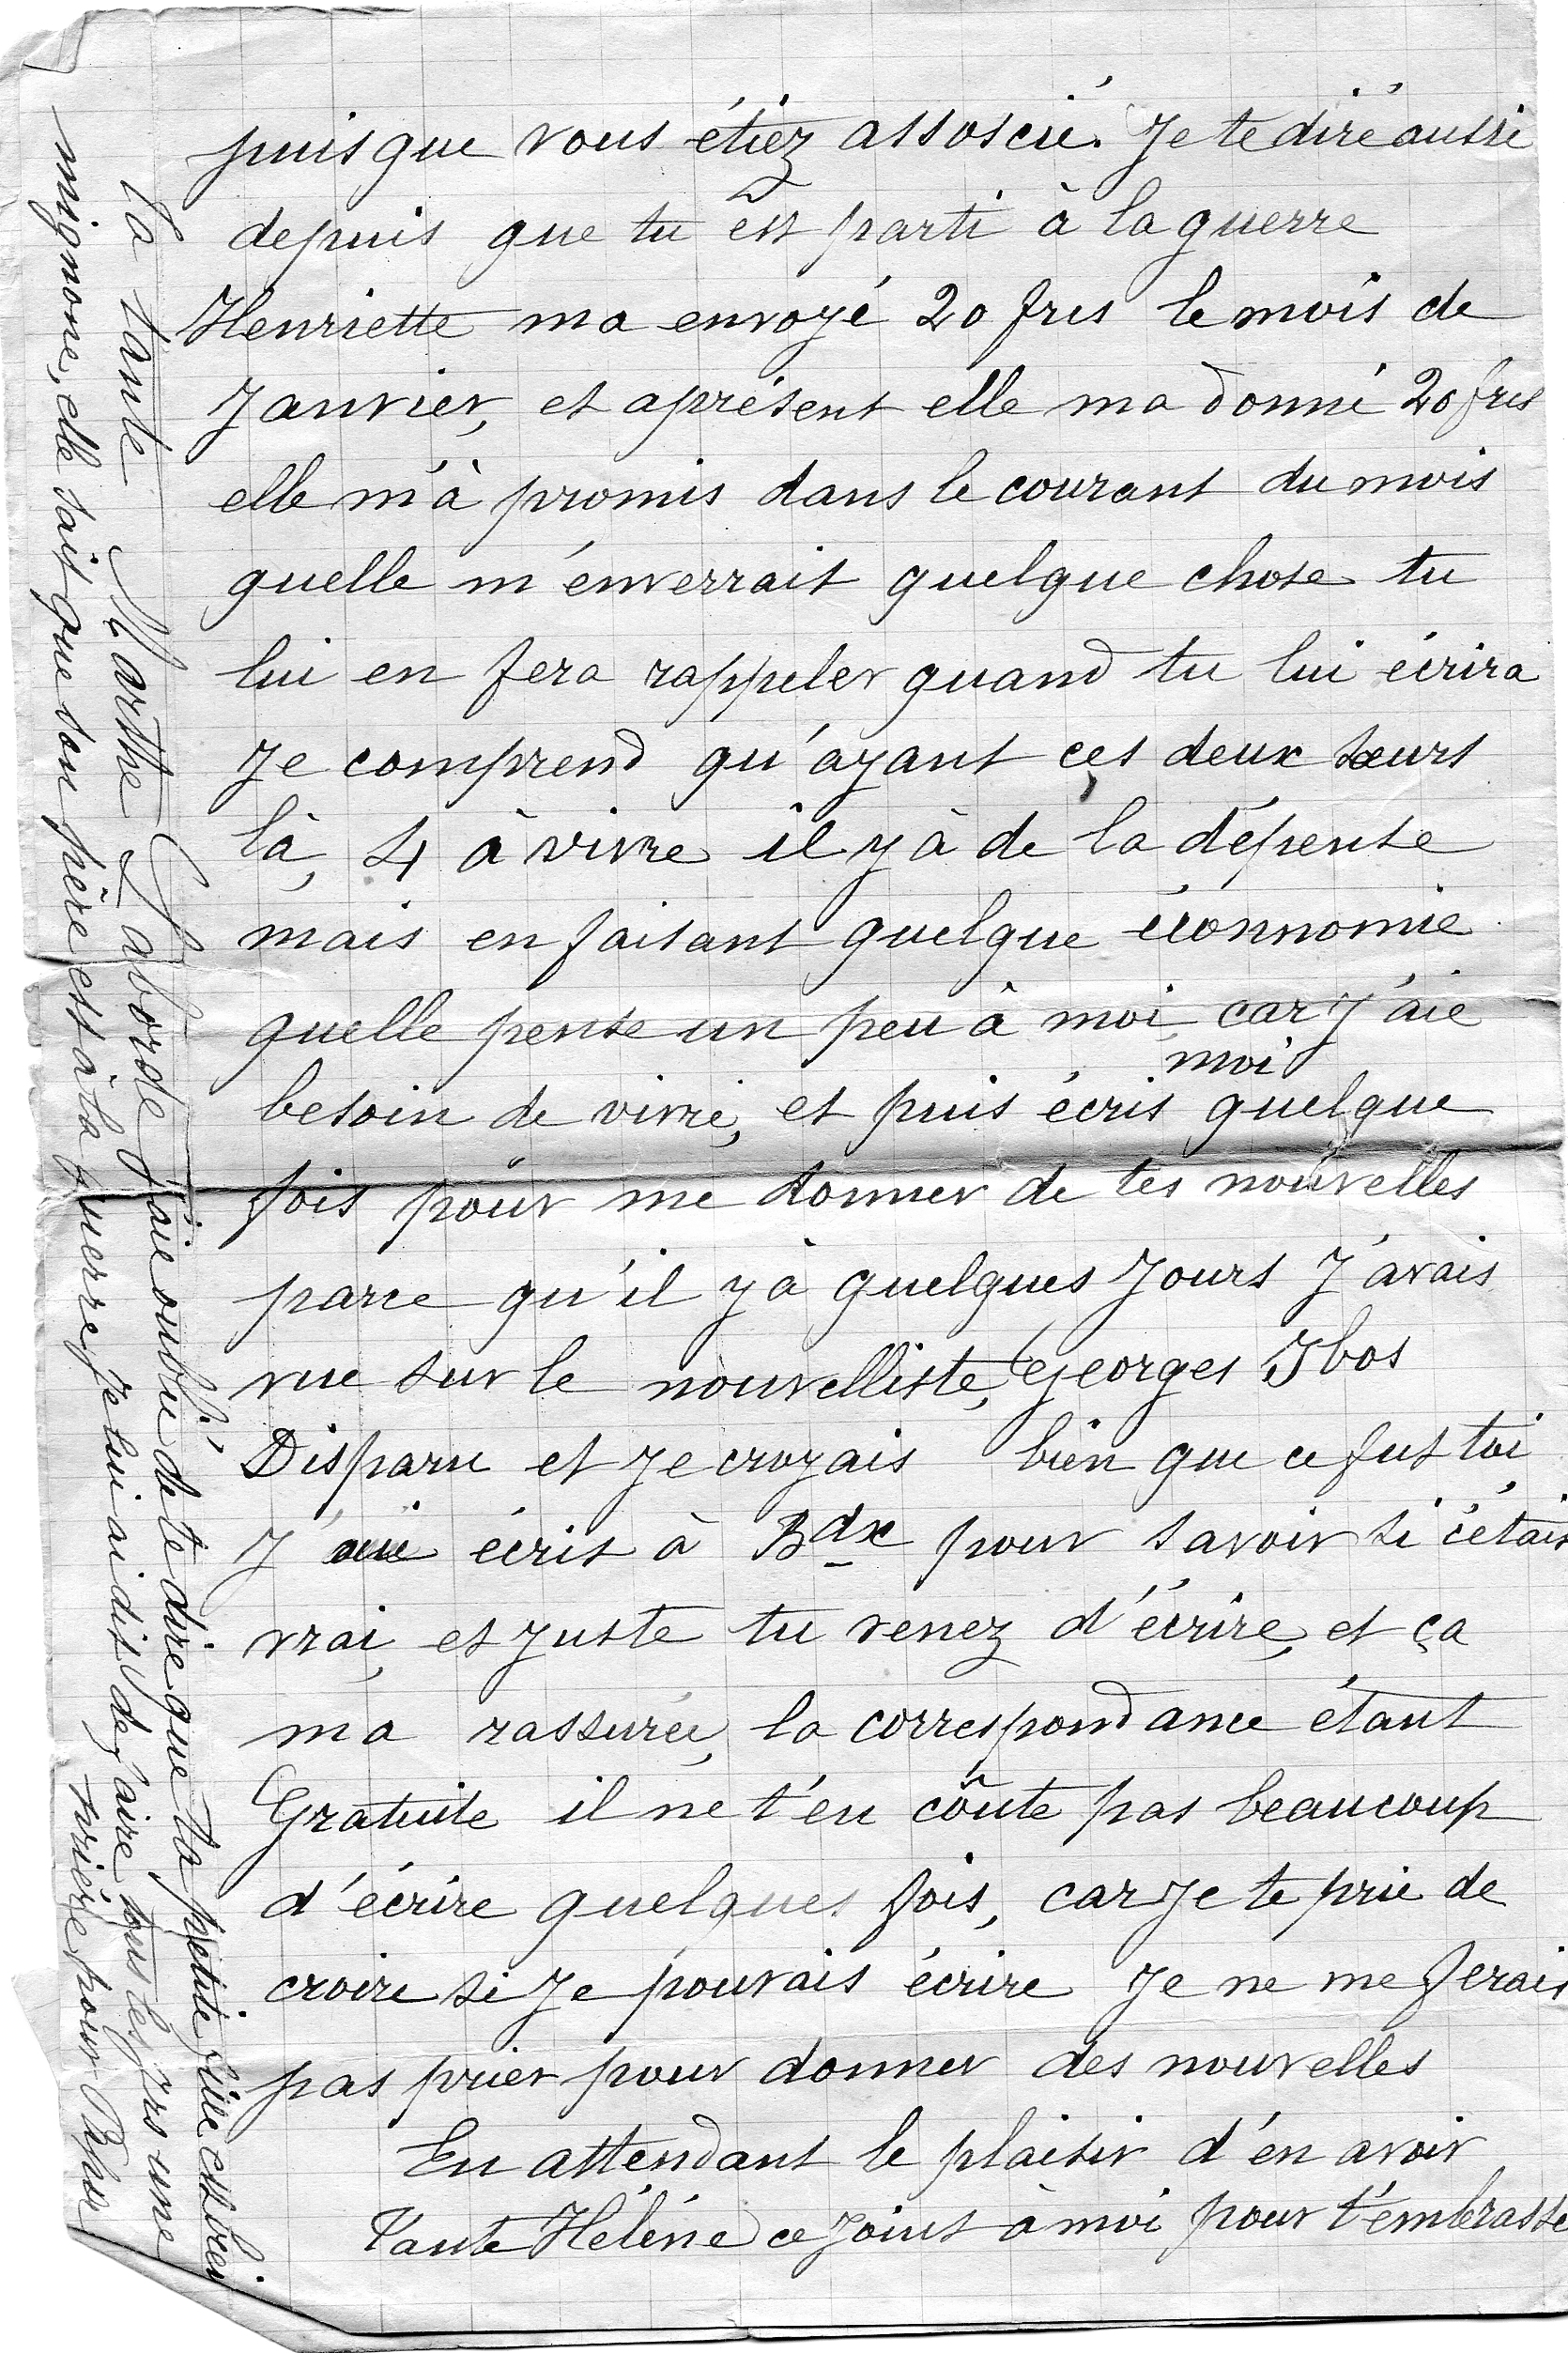 puisque vous étiez assoscié. Je te diré aussi
depuis que tu est parti à la guerre
Henriette ma envoyé 20 frcs le mois de
Janvier, et aprésent elle ma donné 20 frcs
elle m'à promis dans le courant du mois
quelle m'énverrait quelque chose tu
lui en fera rappeler quand tu lui écrira
Je comprend qu'ayant ces deux sœurs
là, 4 à vivre il y à de la dépense
mais en faisant quelque éconnomie
quelle pense un peu à moi, car J'aie
besoin de vivre, et puis écris moi quelque
fois pour me donner de tes nouvelles
parce qu'il y à quelques Jours J'avais
vue sur le nouvelliste, Georges Ibos
Disparu et Je croyais bien que ce fut toi
J'aie écris à Bdx pour savoir si c'étais
vrai, et Juste tu venez d'écrire, et ça
ma rassurée, la correspondance étant
Gratuite il ne t'en côute pas beaucoup
d'écrire quelques fois, car Je te prie de
croire si Je pouvais écrire Je ne me ferais
pas prier pour donner des nouvelles
En attendant le plaisir d'én avoir
Tante Héléne ce Joint à moi pour t'émbrasse
ta tante Marthe Laborde J'aie oublié de te dire que ta petite fille est bien
mignone, elle sait que son père est à la guerre, Je lui ai dit de faire tous les Jrs une
prière pour Papa